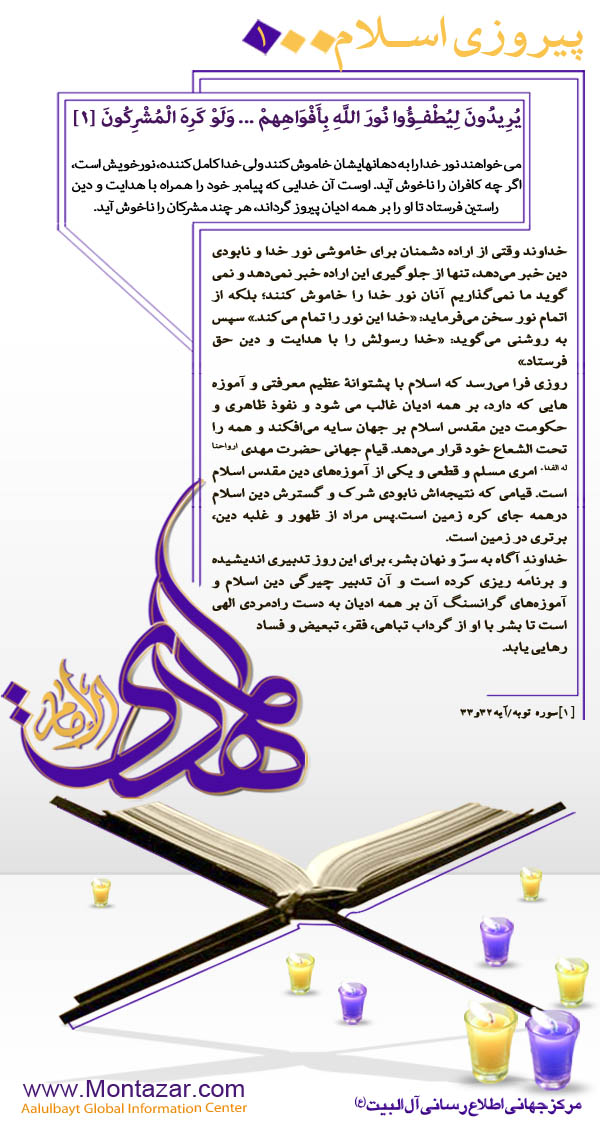 پیروزی اسلام ۱
یُرِیدُونَ لِیُطْفِؤُوا نُورَ اللَّهِ بِأَفْوَاهِهِمْ ... وَلَوْ كَرِهَ الْمُشْرِكُونَ [۱]
می خواهند نور خدا را به دهانهایشان خاموش کنند ولی خدا کامل کننده، نور خویش است،
اگر چه کافران را ناخوش آید. اوست آن خدایی که پیامبر خود را همراه با هدایت و دین
راستین فرستاد تا او را بر همه ادیان پیروز گرداند، هر چند مشرکان را ناخوش آید.
خداوند وقتی از اراده دشمنان برای خاموشی نور خدا و نابودی
دین خبر می‌دهد، تنها از جلوگیری این اراده خبر نمی‌دهد و نمی
گوید ما نمی‌گذاریم آنان نور خدا را خاموش کنند؛ بلکه از
اتمام نور سخن می‌فرماید: «خدا این نور را تمام می‌کند.» سپس
به روشنی می‌گوید: «خدا رسولش را با هدایت و دین حق
فرستاد.»
روزی فرا می‌رسد که اسلام با پشتوانهٔ عظیم معرفتی و آموزه
هایی که دارد، بر همه ادیان غالب می شود و نفوذ ظاهری و
حکومت دین مقدس اسلام بر جهان سایه می‌افکند و همه را
تحت الشعاع خود قرار می‌دهد. قیام جهانی حضرت مهدی ارواحنا
له الفداء- امری مسلم و قطعی و یکی از آموزه‌های دین مقدس اسلام
است. قیامی که نتیجه‌اش نابودی شرک و گسترش دین اسلام
درهمه جای کره زمین است.پس مراد از ظهور و غلبه دین،
برتری در زمین است.
خداوند آگاه به سرّ و نهان بشر، برای این روز تدبیری اندیشیده
و برنامه ریزی کرده است و آن تدبیر چیرگی دین اسلام و
آموزه‌های گرانسنگ آن بر همه ادیان به دست رادمردی الهی
است تا بشر با او از گرداب تباهی، فقر، تبعیض و فساد
رهایی یابد.
[۱]سوره توبه/آیه۳۲و۳۳
الإمام
المهدی
www.Montazar.com
Aalulbayt Global Information Center
مرکز جهانی اطلاع رسانی آل البیت (ع)